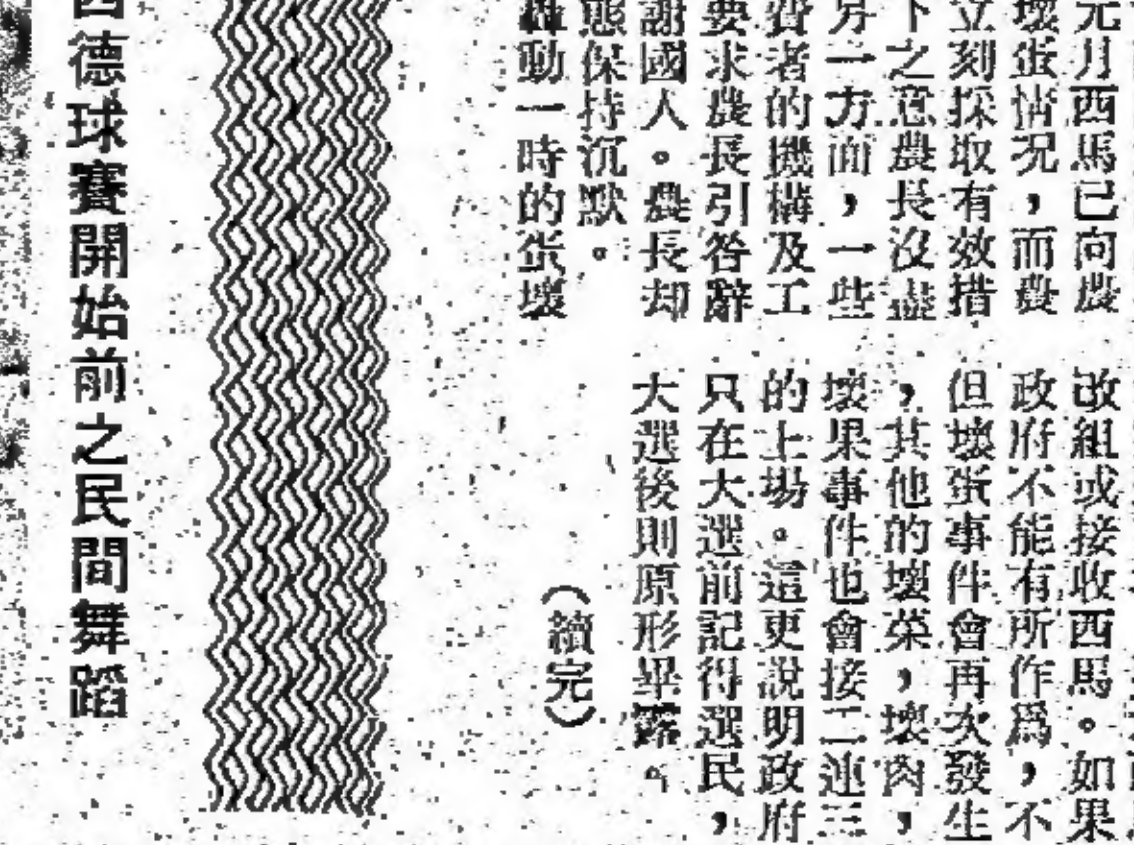 元月西馬已向農
壞蛋情况，而農
立刻採取有效措
下之意農長沒盡
另一方面，一些
費者的機構及工
要求農長引咎辭
謝國人。農長却
態保持沉默。
轟動一時的蛋壞
改組或接收西馬。如果
政府不能有所作爲，不
但壞蛋事件會再次發生
，其他的壞菜，壞肉，
壞果事件也會接二連三
的上場。這更說明政府
只在大選前記得選民，
大選後則原形畢露。
（續完）
西德球賽開始前之民間舞蹈